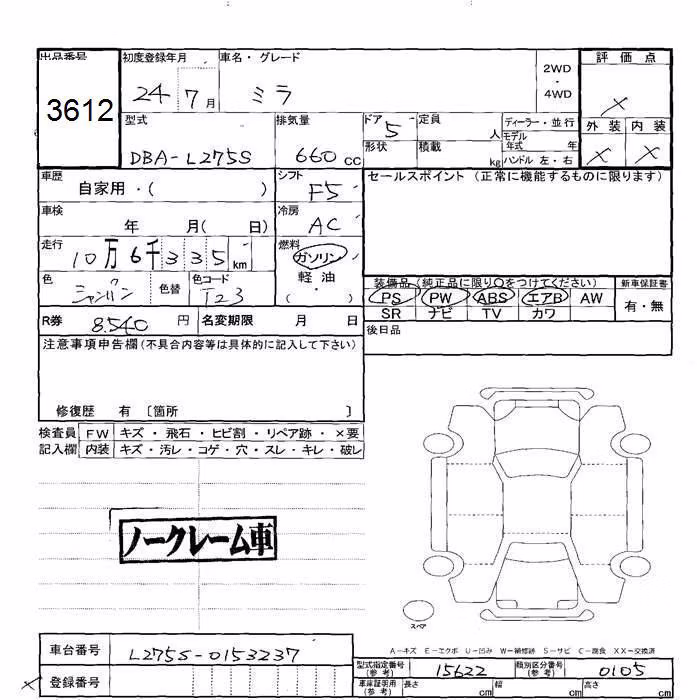 出品番号 初度登録年月 車名・グレード 評価点
3612 24 7月 ミラ 2WD・4WD X
型式 排気量 ドア 定員 ディーラー・並行 外装 内装
DBA-L275S 660cc 5 人 モデル年式 年 X X
形状 積載 kg ハンドル 左・右
車歴 自家用・( ) シフト F5 セールスポイント (正常に機能するものに限ります)
車検 年 月( 日) 冷房 AC
走行 10万6千335km 燃料 ガソリン 軽油 ・( )
色 シャンパン 色替 色コード T23
装備品(純正品に限り○をつけてください) 新車保証書
PS PW ABS エアB AW 有・無
SR ナビ TV カワ
R券 8.540 円 名変期限 月 日
後日品
注意事項申告欄(不具合内容等は具体的に記入して下さい)
修復歴 有 〔箇所 〕
検査員 FW キズ・飛石・ヒビ割・リペア跡・×要
記入欄 内装 キズ・汚レ・コゲ・穴・スレ・キレ・破レ
ノークレーム車
スペア
A-キズ E-エクボ U-凹み W-補修跡 S-サビ C-腐食 XX-交換済
車台番号 L275S-0153237
型式指定番号(参考) 15622 類別区分番号(参考) 0105
X 登録番号
車庫証明用(参考) 長さ cm 幅 cm 高さ cm